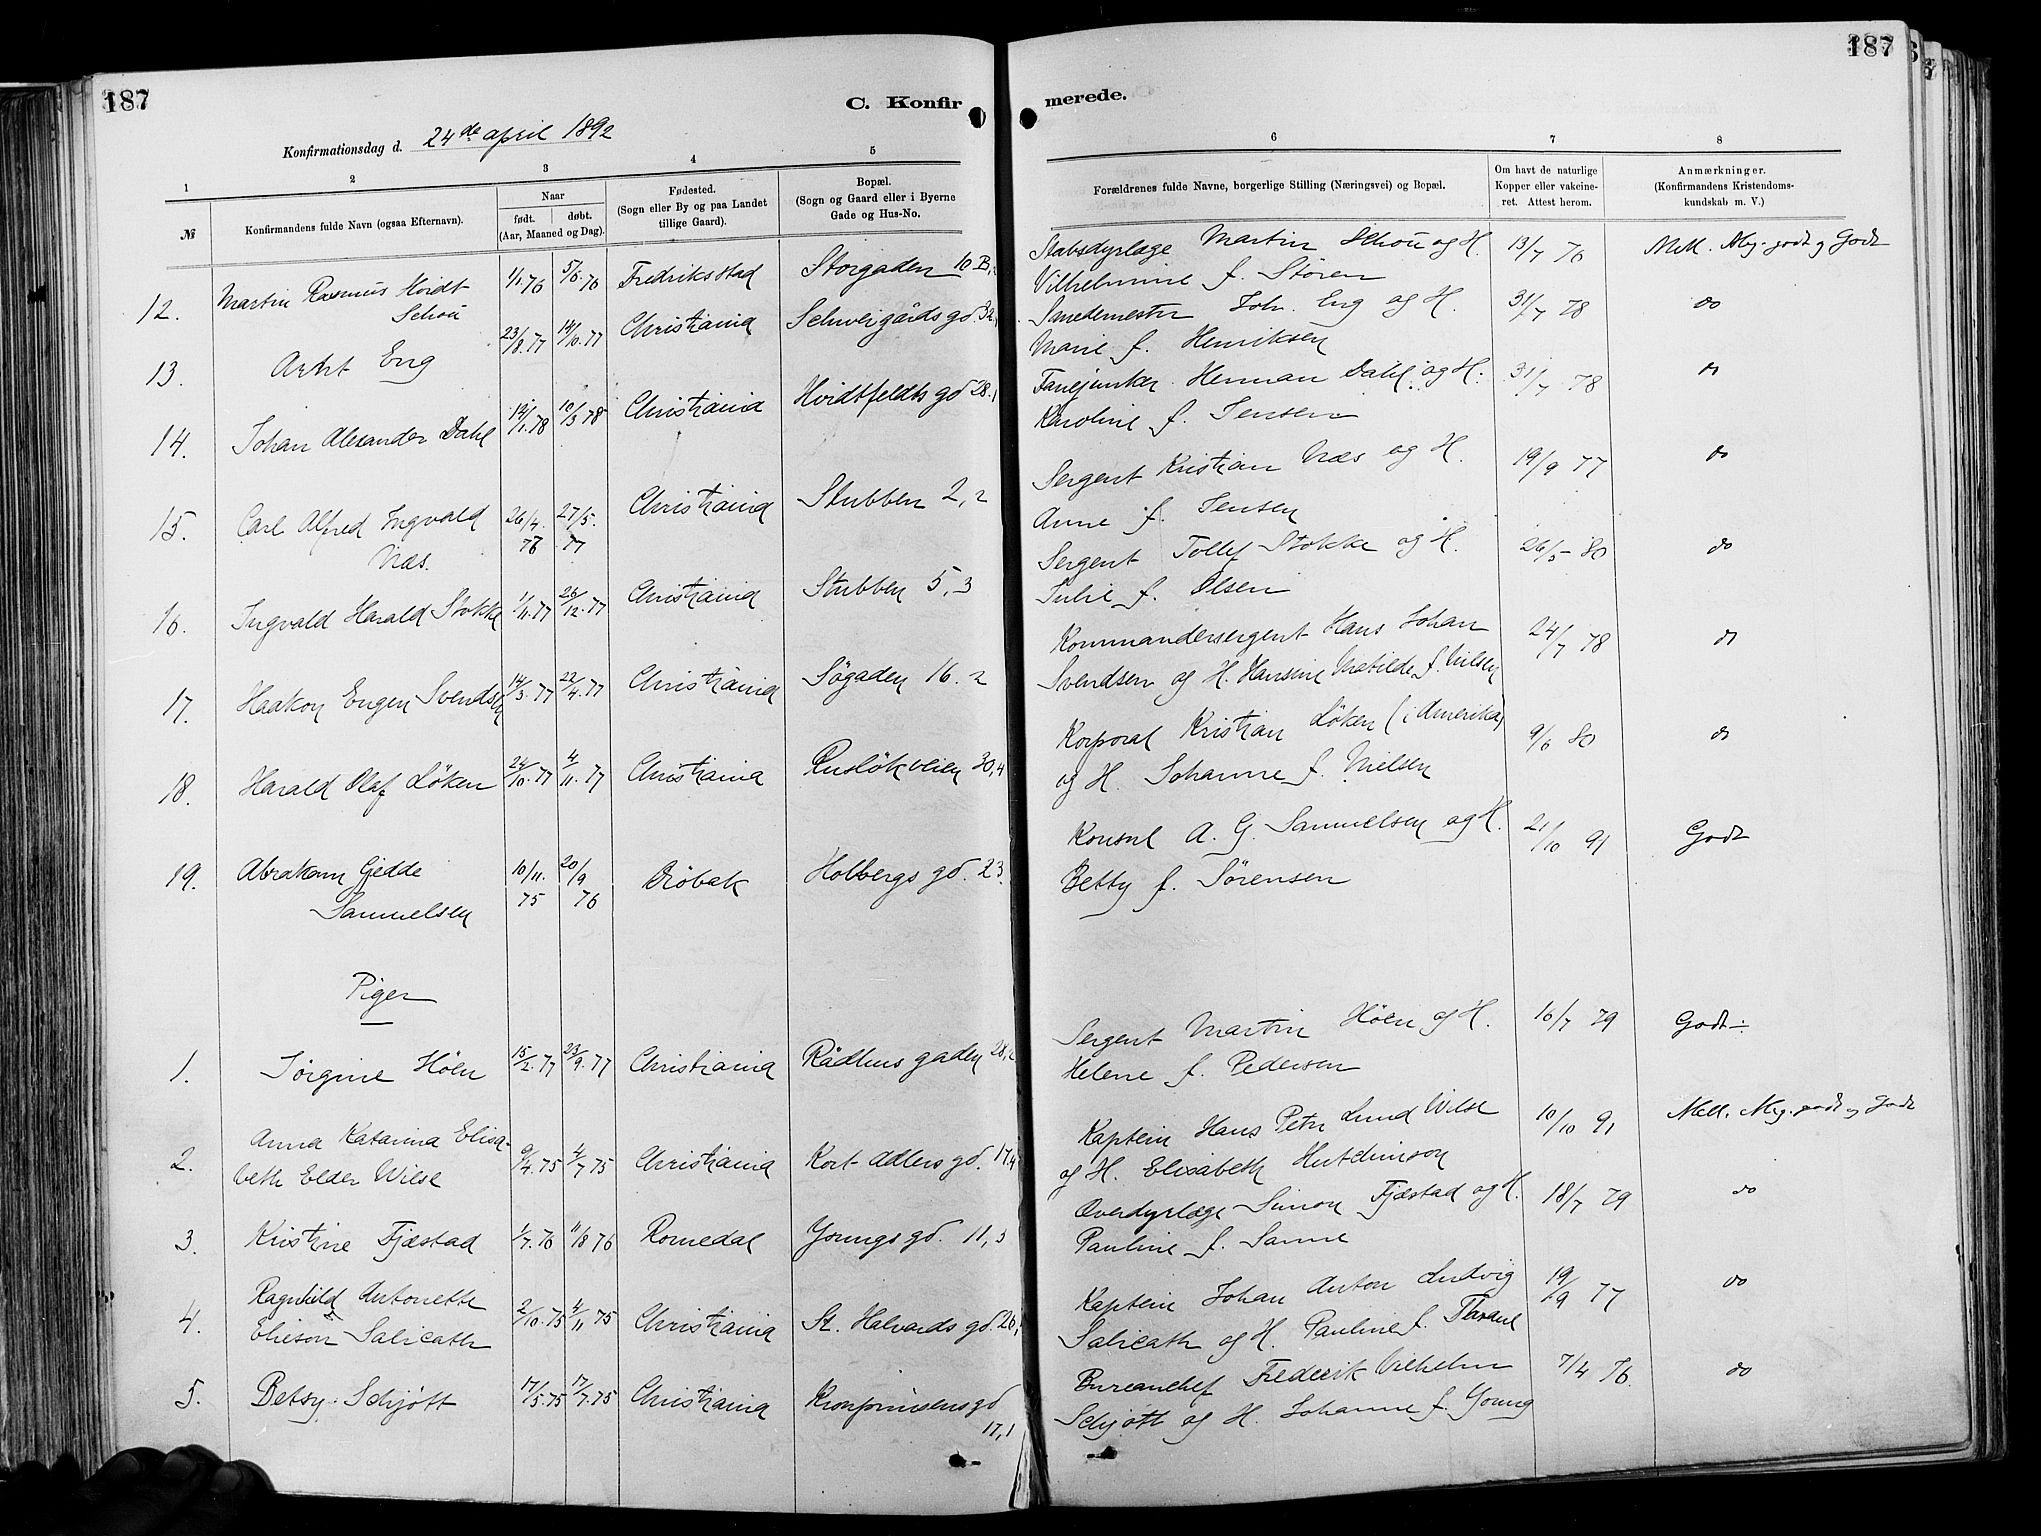 187
C. Konfir
merede.
187
Konfirmationsdag d. 24de april 1892
1
2
3
4
5
6
7
8
№
Konfirmandens fulde Navn (ogsaa Efternavn).
Naar
født. døbt.
(Aar, Maaned og Dag).
Fødested.
(Sogn eller By og paa Landet
tillige Gaard).
Bopæl.
(Sogn og Gaard eller i Byerne
Gade og Hus-No.
Forældrenes fulde Navne, borgerlige Stilling (Næringsvei) og Bopæl.
Om havt de naturlige
Kopper eller vakcine-
ret. Attest herom.
Anmærkninger.
(Konfirmandens Kristendoms-
kundskab m. V.)
12. Martin Rasmus Hvidt 1/1.76 5/6.76 Fredriksstad Storgaden 10 B, Stabsdyrlæge Martin Schou og H. 13/7 76 Mell. Meg. godt og Godt
Schou Vilhelmine f. Støren
13. Arht Eng 23/8.77 14/10.77 Christiania Schweigårds gd. 32, Smedemester Joh. Eng og H. 31/7 78 do
Marie f. Henriksen
14. Johan Alexander Dahl 14/1.78 10/3 78 Christiania Hvidtfeldts gd 28, Fanejunker Herman Dahl og H. 31/7 78 do
Karoline f. Jensen
15. Carl Alfred Ingvald 26/4. 27/5. Christiania Stubben 2, 2 Sergent Kristian Næs og H. 19/9 77 do
Næs. 77 Anne f. Jensen
16. Ingvald Harald Stokke 1/11.77 26/12.77 Christiania Stubben 5, 3 Sergent Tollef Stokke og H. 26/5 80 do
Julie f. Olsen
17. Haakon Engen Svendsen 14/3.77 22/4.77 Christiania Søgaden 16. 2 Kommandersergent Hans Johan 24/7 78 do
Svendsen og H. Hansine Matilde f. Nilsen
18. Harald Olaf Løken 24/10.77 4/11.77 Christiania Rusløkveien 30,4 Korporal Kristian Løken (i Amerika) 9/6 80 do
og H. Johanne f. Nielsen
19. Abraham Gedde 10/11. 20/9 Drøbak Holbergs gd. 23. Konsul A. G. Samuelsen og H. 21/10 91 Godt
Samuelsen 75 76 Betty f. Sørensen
Piger
1. Jørgine Höen 15/2.77 23/9.77 Christiania Rådhus gaden 28,2 Sergent Martin Höen og H. 16/7 79 Godt
Helene f. Pedersen
2. Anna Katarina Elisa- 9/4.75 4/7 75 Christiania Kort Adlers gd. 17,4 Kaptein Hans Peter Lund Wilse 10/10 91 Mell. Meg. godt og godt
beth Elder Wilse og H. Elisabeth Hutchinson
3. Kristine Fjæstad 1/7.76 11/8 76 Romedal Youngs gd. 11, 3 Overdyrlæge Simon Fjæstad og H. 18/7 79 do
Pauline f. Sanne
4. Ragnhild Antonette 2/10.75 4/11 75 Christiania St. Halvards gd. 26, Kaptein Johan Anton Ludvig 19/9 77 do
Elieson Salicath Salicath og H. Pauline f.
5. Betsy Schjøtt 17/5.75 17/7.75 Christiania Kronprinsens gd Bureauchef Frederik Vilhelm 7/4 76. do
17, 1 Schjøtt og H. Johanne f. Young